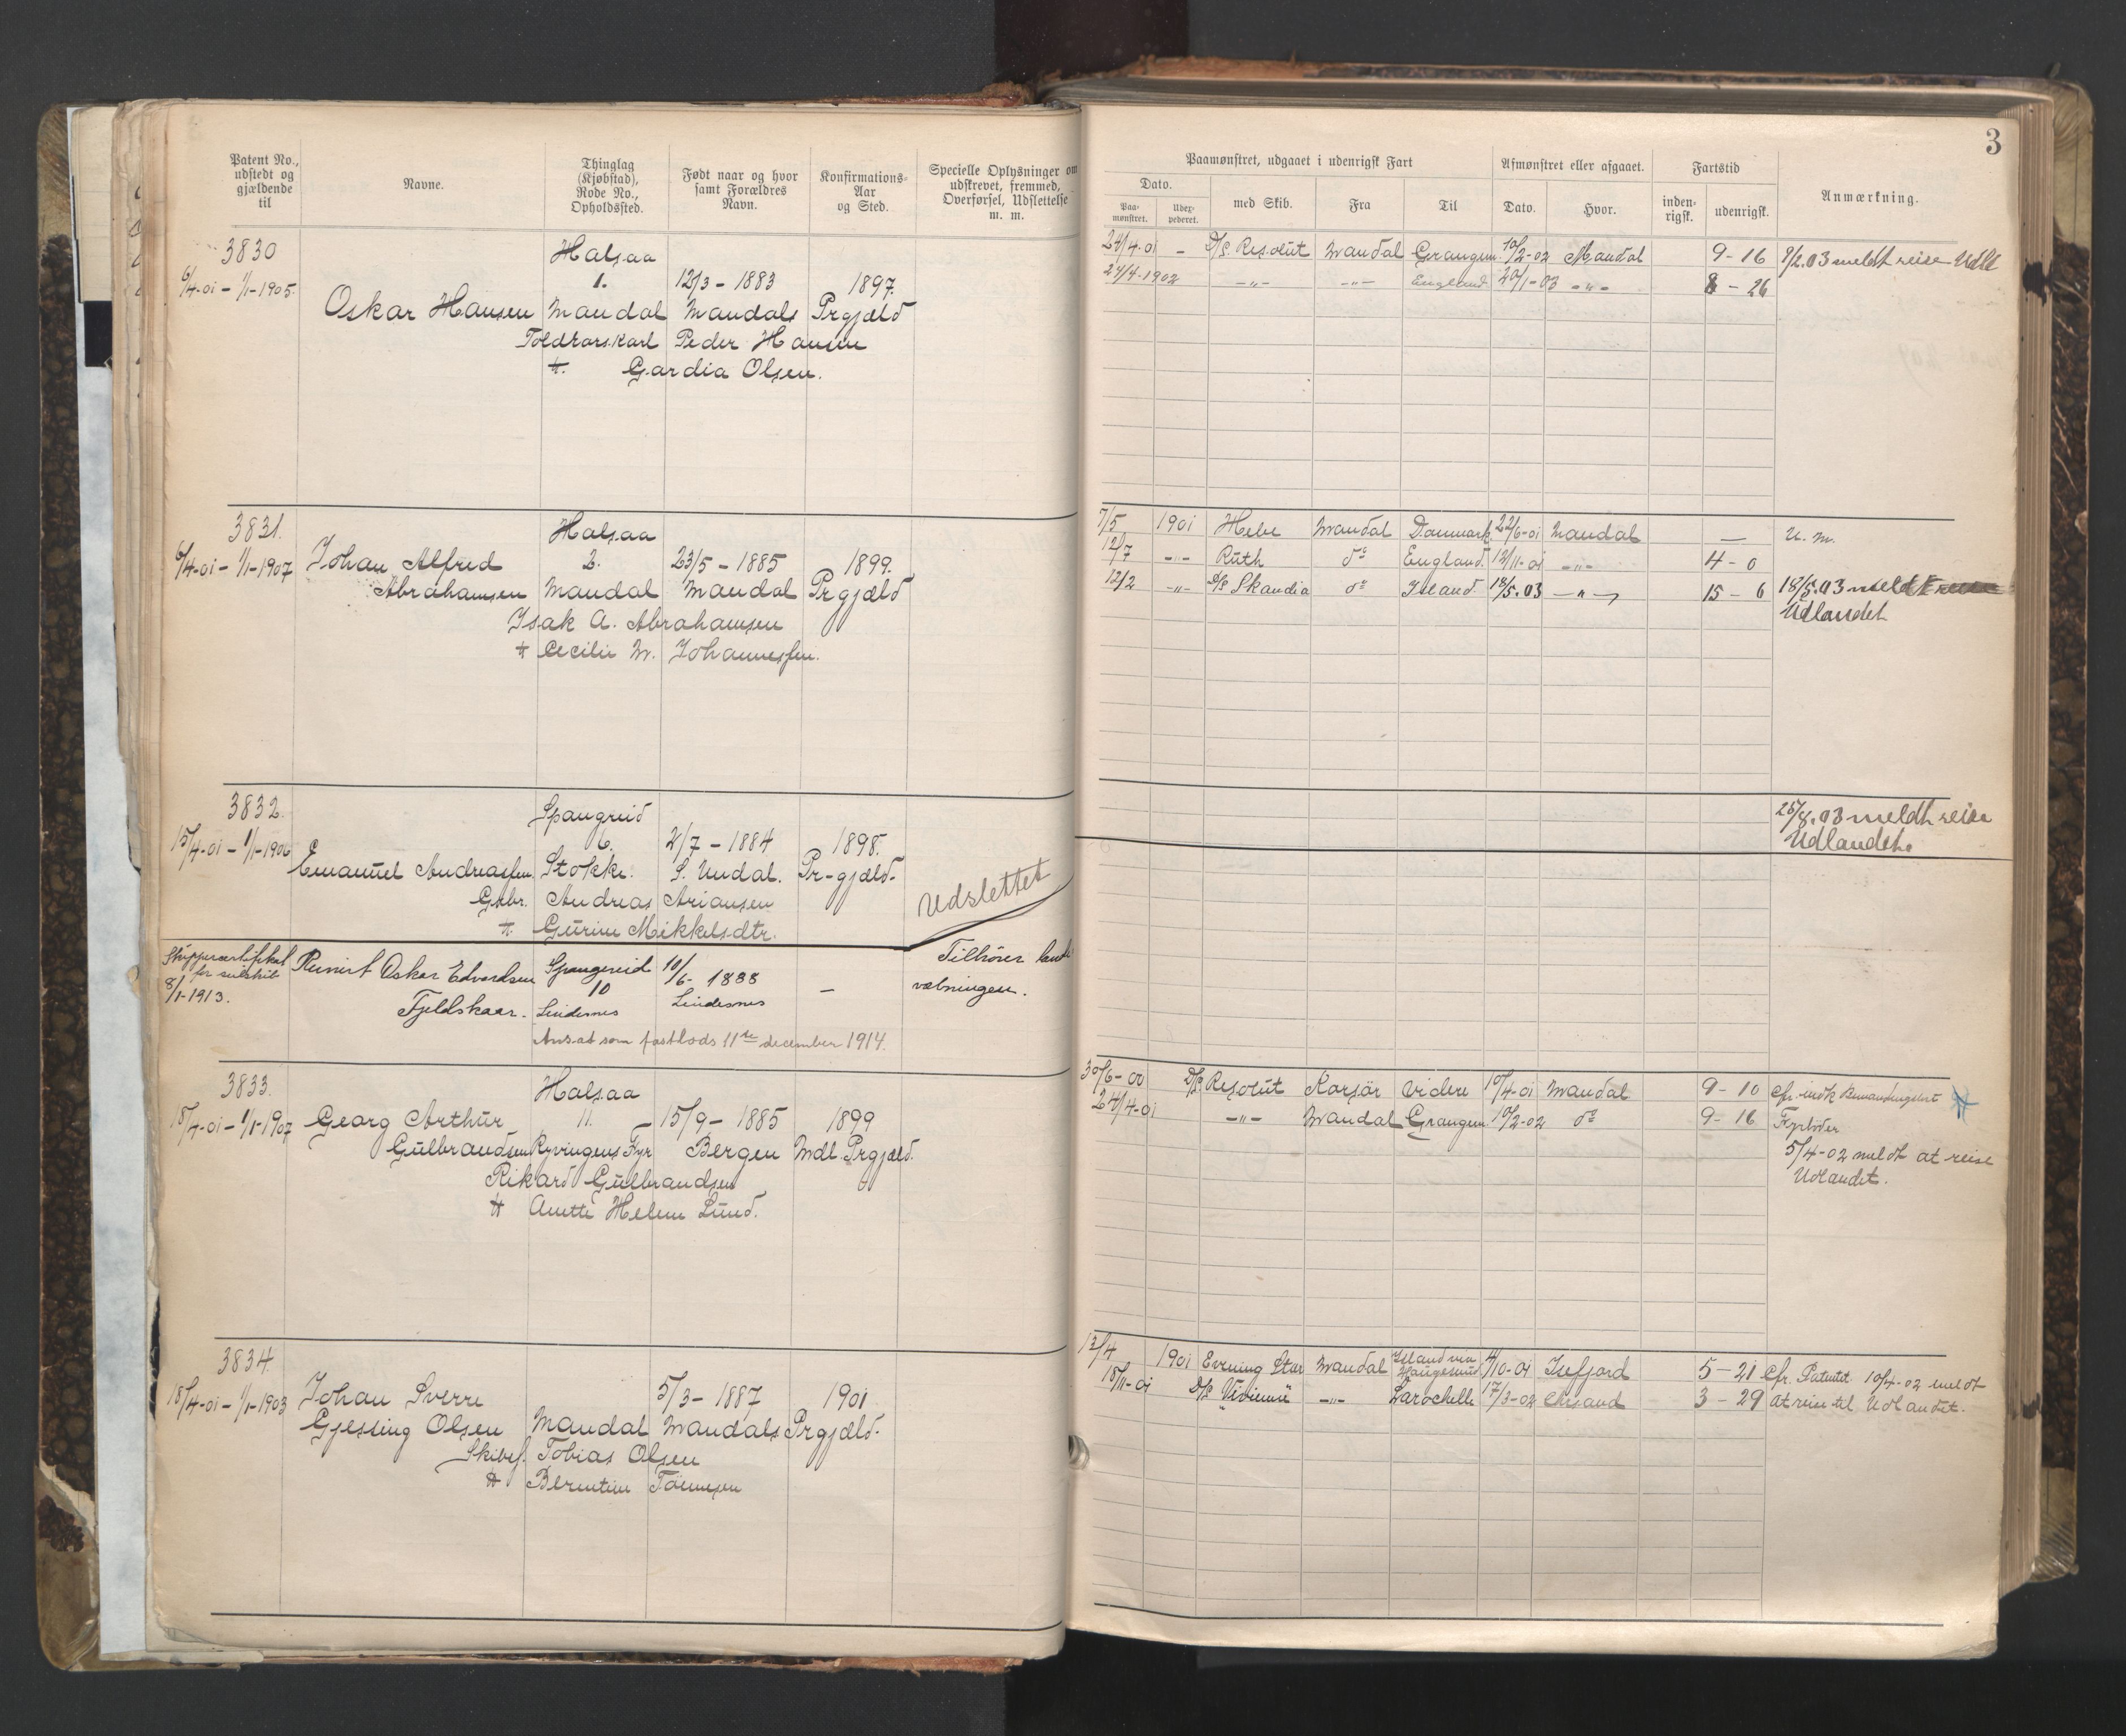 Patent No., udstedt og gjældende til
Navne.
Thinglag (Kjøbstad), Rode No., Opholdssted.
Født naar og hvor samt Forældres Navn.
Konfirmations-Aar og Sted.
Specielle Oplysninger om udskrevet, fremmed, Overførsel, Udslettelse m. m.
3830
Halsaa
6/4-01 – 1/1-1905.
1.
12/3 – 1883
1897.
Oskar Hansen Mandal Mandals Prgjæld
Peder Hansen
Gardia Olsen.
3831.
Halsaa
6/4-01 – 1/1-1907
Johan Alfred
2.
23/5 – 1885
1899.
Abrahamsen Mandal Mandal Prgjæld
Isak A. Abrahamsen
Cecilie M. Johannessen.
3832.
Spangreid
15/4-01 – 1/1-1906
6.
2/7 – 1884
1898.
Emanuel Andreassen Stokke. S. Undal. Pr-gjæld.
Gbr. Andreas Ariansen
Gurine Mikkelsdtr.
Udslettet
Skippercertifikat for seilskib 8/1-1913.
Reinert Oskar Edvardsen Spangereid 10/6- 1888
Tilhører land-
10
–
væbningen.
Fjeldskaar. Lindesnes Lindesnes
Ansat som fastlods 11te december 1914.
3833.
Halsaa
18/4-01 – 1/1-1907
Georg Arthur
11.
15/9 – 1885
1899
Gulbrandsen Ryvingens Fyr Bergen Mdl. Prgjæld.
Rikard Gulbrandsen
Anette Helene Lund.
3834.
18/4-01 – 1/1-1903
Johan Sverre
5/3 – 1887
1901
Gjessing Olsen Mandal Mandals Prgjæld.
Skibsf. Tobias Olsen
Berntine Tønnesen
3
Paamønstret, udgaaet i udenrigsk Fart
Afmønstret eller afgaaet.
Fartstid
Anmærkning.
Dato.
Paa-mønstret.
Uder-pederet.
med Skib.
Fra
Til
Dato.
Hvor.
inden-rigsk.
udenrigsk.
24/4-01 – D/S Resolut Mandal Grangem. 10/2-02 Mandal 9 – 16 9/2.03 meldt reise Udl
24/4-1902 –"– –"– England 20/1-03 –"– 8 – 26
7/5 1901 Hebe Mandal Danmark 22/6-01 Mandal — U. M.
12/7 –"– Ruth do England. 12/11-01 –"– 4 – 0
12/2 –"– D/S Skandia do Island 18/5.03 –"– 15 – 6 18/5.03 meldt reise
Udlandet
25/8.03 meldt reise
Udlandet.
30/6-00 D/S Resolut Korsör videre 10/4-01 Mandal 9 – 10 Cfr. indk Bemandingslist
24/4-01 –"– Mandal Grangem. 10/2-02 do 9 – 16
5/4-02 meldt at reise
Udlandet.
12/4 1901 Evening Star Mandal Island via Haugesund 4/10-01 Isefjord 5 – 21 Cfr. Patentet 10/4-02 meldt
18/11-01 D/S –"– Larochelle 17/3-02 Chrsand 3 – 29 at reise til Udlandet.